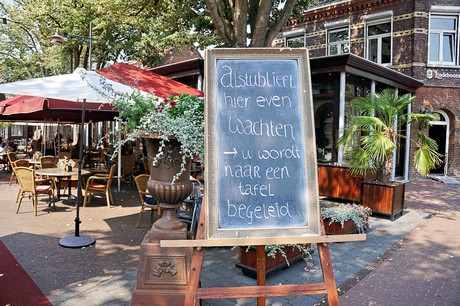 alstublieft
hier even
wachten
→ u wordt
naar een
tafel
begeleid
Lindeboom